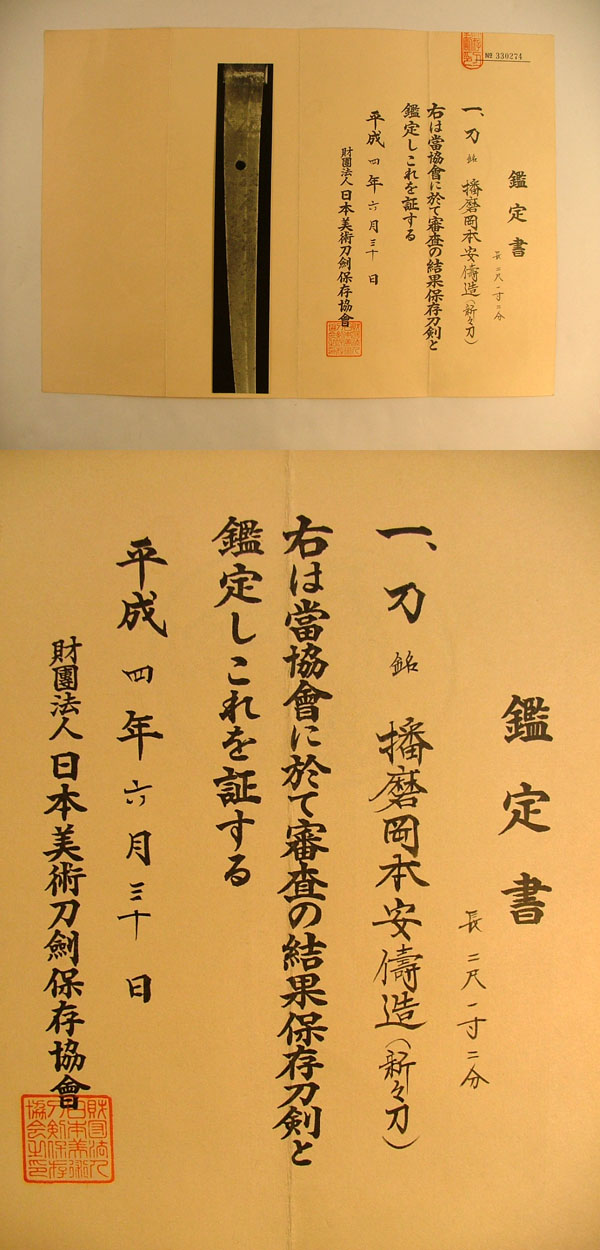 No 330274
鑑定書
長二尺一寸二分
一、刀 銘 播磨岡本安儔造(新々刀)
右は當協會に於て審査の結果保存刀剣と
鑑定しこれを証する
平成四年六月三十日
財團法人日本美術刀劍保存協會
鑑定書
長二尺一寸二分
一、刀 銘 播磨岡本安儔造(新々刀)
右は當協會に於て審査の結果保存刀剣と
鑑定しこれを証する
平成四年六月三十日
財團法人日本美術刀劍保存協會
財団法人
日本美術
刀剣保存
協会之印